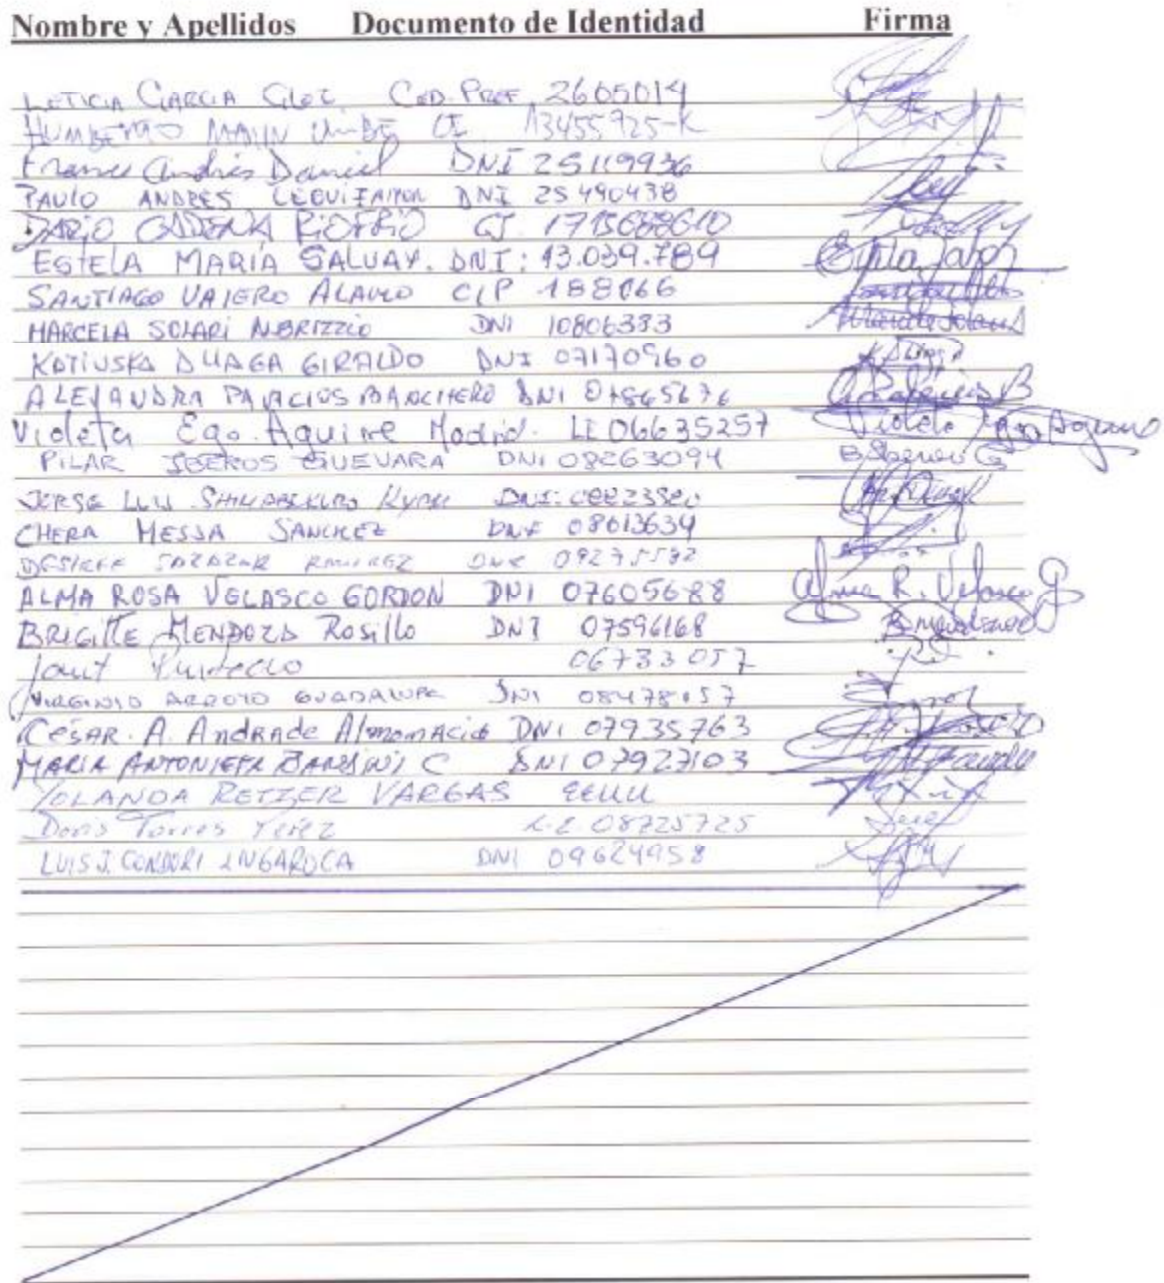 Nombre y Apellidos Documento de Identidad Firma
LETICIA GARCIA GLEZ. CED. PROF. 2605014
HUMBERTO MALIN URIBE CI 13455925-K
Franco Andrés Daniel DNI 25119936
PAULO ANDRES LEGUIZAMON DNI 25490438
DARIO CADENA RIOFRIO CI. 1715688610
ESTELA MARIA SALUAY. DNI: 13.039.789
SANTIAGO VALERO ALAMO CIP 188066
MARCELA SOLARI ALBRIZZIO DNI 10806383
KATIUSKA DUAGA GIRALDO DNI 07170960 K Duaga
ALEJANDRA PALACIOS BANCHERO DNI 07865676 A Palacios B
Violeta Ego-Aguirre Madrid. LE 06635257 Violeta Ego Aguirre
PILAR SBEROS GUEVARA DNI 08263094
JORGE LUIS DNI:
CHERA MESSA SANCHEZ DNI 08013634
DESIREE SALAZAR RAMIREZ DNI 09275532
ALMA ROSA VELASCO GORDON DNI 07605688 Alma R. Velasco G
BRIGITTE MENDOZA Rosillo DNI 07596168
06733057
VIRGINIO ARROYO GUADALUPE DNI
CÉSAR. A. Andrade Almomacid DNI 07935763
MARIA ANTONIETA BANSINI C DNI 07927103
YOLANDA RETZER VARGAS EEUU
Doris Torres Perez L.E. 08725725
LUIS J. CONDORI LINGAROCA DNI 09624958